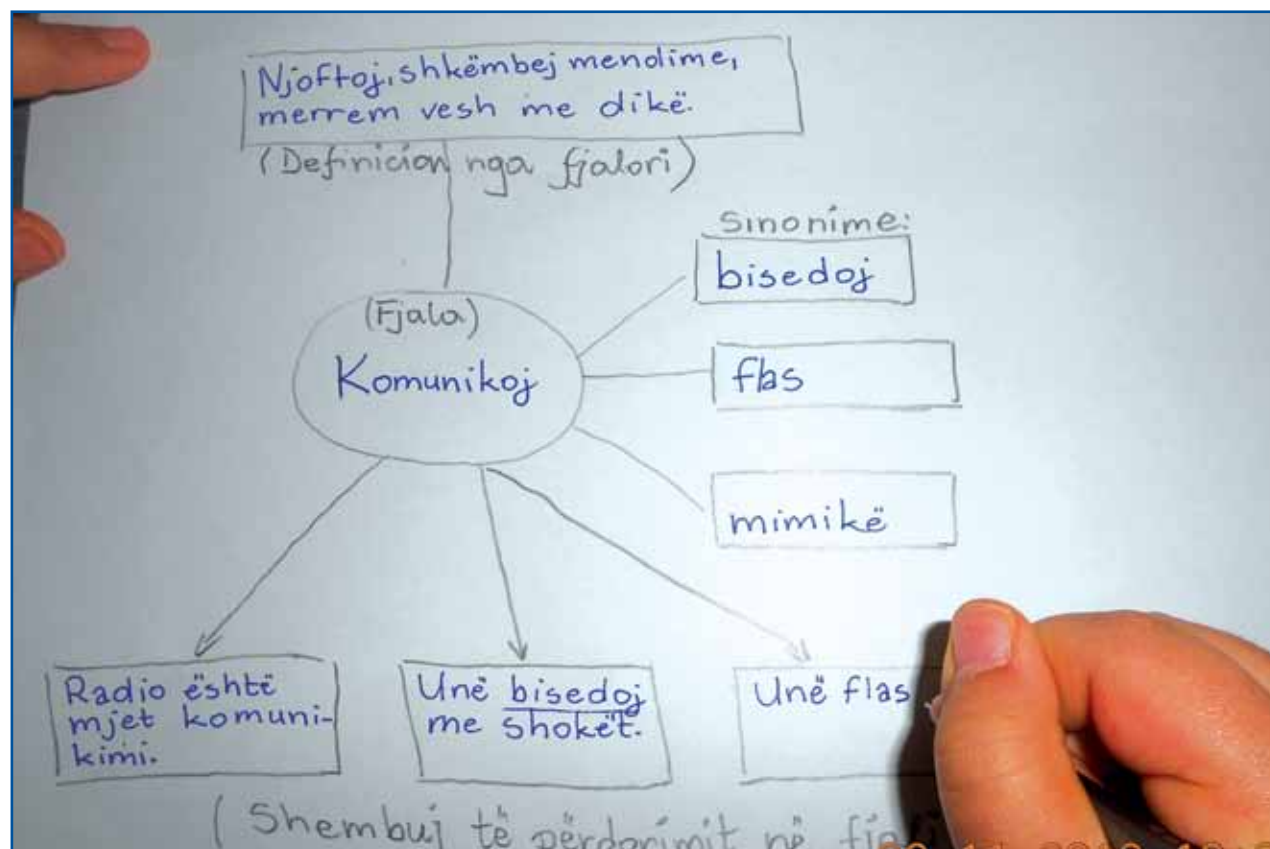 Njoftoj, shkëmbej mendime,
merrem vesh me dikë.
(Definicion nga fjalori)
Sinonime:
bisedoj
(Fjala)
Komunikoj
flas
mimikë
Radio është
mjet komuni-
kimi.
Unë bisedoj
me shokët.
Unë flas
(Shembuj të përdorimit në